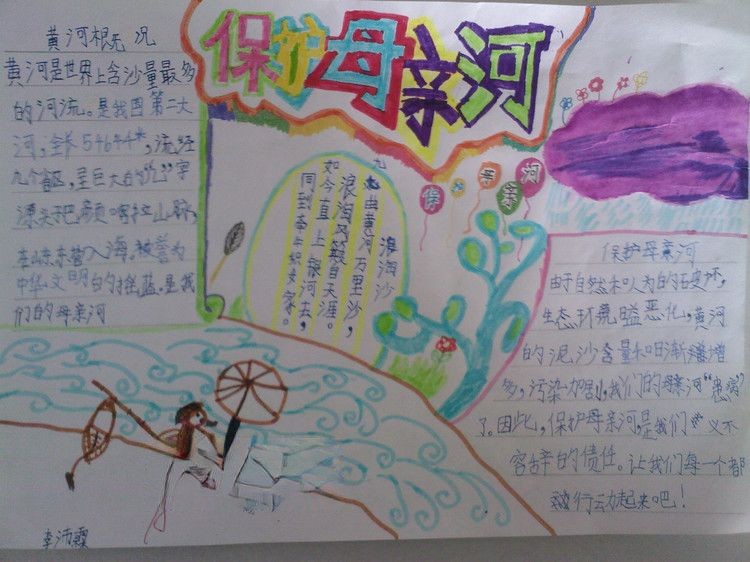 保护母亲河
黄河概况
黄河是世界上含沙量最多
的河流。是我国第二大
河,全长5464千米,流经
九个省区,呈巨大的"几"字
源头于巴颜喀拉山脉,
在山东东营入海。被誉为
中华文明的摇篮,是我
们的母亲河
浪淘沙
九曲黄河万里沙,
浪淘风簸自天涯。
如今直上银河去,
同到牵牛织女家。
保护母亲河
保护母亲河
由于自然和人为的破坏,
生态环境日益恶化,黄河
的泥沙含量和日渐增
多,污染加剧,我们的母亲河"患病"
了。因此,保护母亲河,是我们义不
容辞的债任。让我们每一个都
行动起来吧!
李沛霖